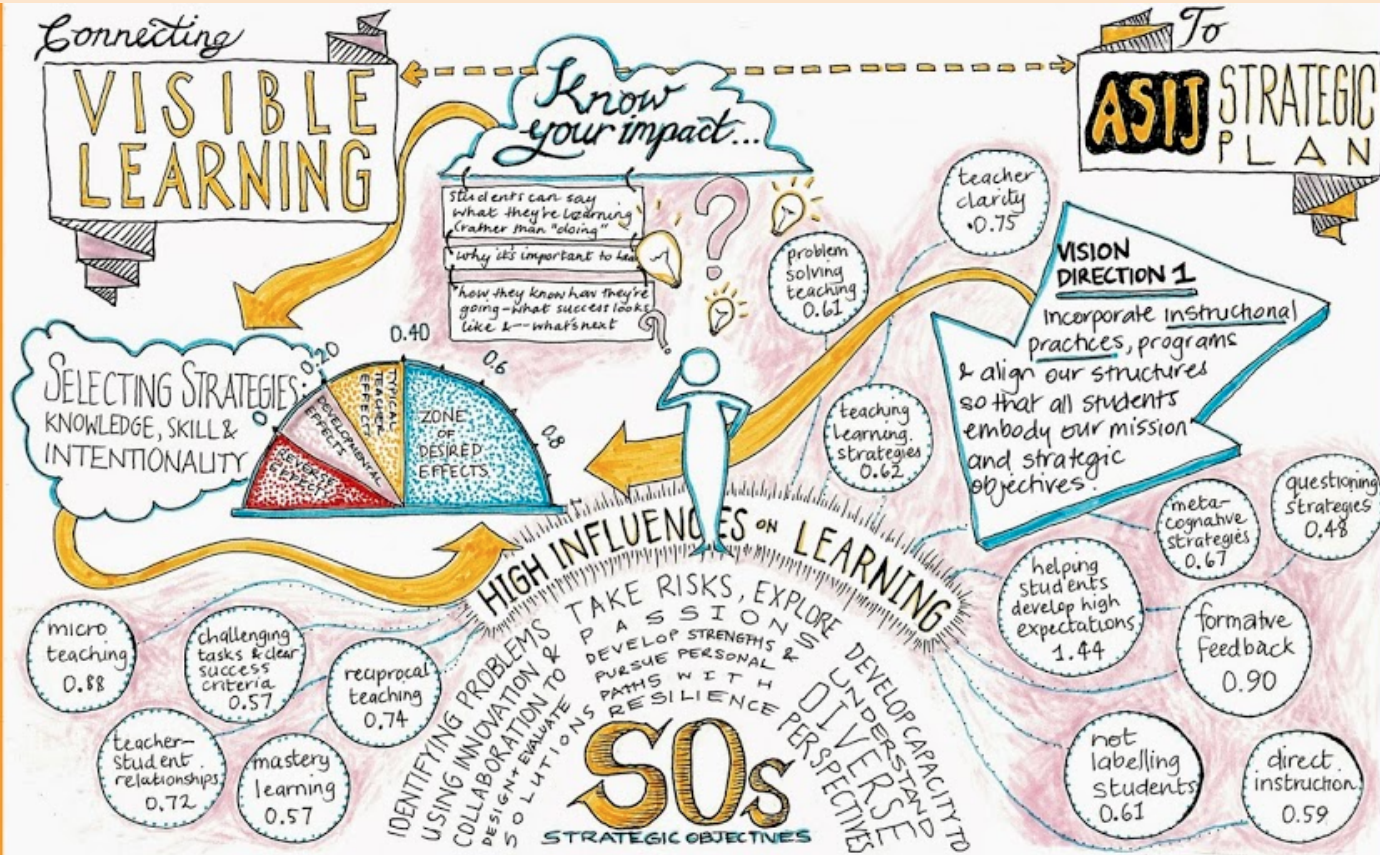 Connecting
VISIBLE
LEARNING
Know
your impact...
To
ASIJ STRATEGIC
PLAN
students can say
what they're learning
(rather than "doing"
why it's important to
how they know how they're
going - what success looks
like & -- what's next
?
?
SELECTING STRATEGIES.
KNOWLEDGE, SKILL &
INTENTIONALITY
0
0.20
0.40
0.6
0.8
1
REVERSE
EFFECTS
DEVELOPMENTAL
EFFECTS
TYPICAL
TEACHER
EFFECTS
ZONE
OF
DESIRED
EFFECTS
teacher
clarity
0.75
problem
solving
teaching
0.61
teaching
learning
strategies
0.62
VISION
DIRECTION 1
Incorporate instructional
practices, programs
& align our structures
so that all students
embody our mission
and strategic
objectives.
HIGH INFLUENCES ON LEARNING
meta-
cognative
strategies
0.67
questioning
strategies
0.48
helping
students
develop high
expectations
1.44
formative
feedback
0.90
not
labelling
students
0.61
direct
instruction
0.59
micro
teaching
0.88
challenging
tasks & clear
success
criteria
0.57
reciprocal
teaching
0.74
teacher-
student
relationships
0.72
mastery
learning
0.57
IDENTIFYING PROBLEMS
USING INNOVATION &
COLLABORATION TO
DESIGN + EVALUATE
SOLUTIONS
TAKE RISKS, EXPLORE
PASSIONS
DEVELOP STRENGTHS &
PURSUE PERSONAL
PATHS WITH
RESILIENCE
DEVELOP CAPACITY TO
UNDERSTAND
DIVERSE
PERSPECTIVES
SOs
STRATEGIC OBJECTIVES